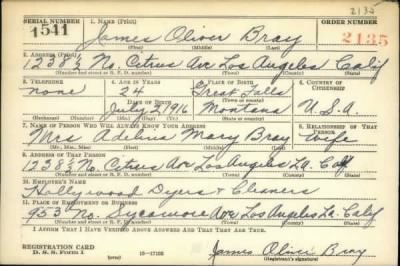 2135
SERIAL NUMBER 1. NAME (Print) ORDER NUMBER
1541 James Oliver Bray 2135
(First) (Middle) (Last)
2. ADDRESS (Print)
1238½ No. Citrus Ave Los Angeles Calif
(Number and street or R. F. D. number) (Town) (County) (State)
3. TELEPHONE 4. AGE IN YEARS 5. PLACE OF BIRTH 6. COUNTRY OF CITIZENSHIP
none 24 Great Falls
DATE OF BIRTH
July 2 1916 Montana U.S.A.
7. NAME OF PERSON WHO WILL ALWAYS KNOW YOUR ADDRESS 8. RELATIONSHIP OF THAT PERSON
Mrs Adelina Mary Bray Wife
(Mr., Mrs., Miss) (First) (Middle) (Last)
9. ADDRESS OF THAT PERSON
1238½ No. Citrus Ave Los Angeles La. Calif
(Number and street or R. F. D. number) (Town) (County) (State)
10. EMPLOYER'S NAME
Hollywood Dyers & Cleaners
11. PLACE OF EMPLOYMENT OR BUSINESS
953 No. Sycamore Ave Los Angeles La. Calif
(Number and street or R. F. D. number) (Town) (County) (State)
I AFFIRM THAT I HAVE VERIFIED ABOVE ANSWERS AND THAT THEY ARE TRUE.
REGISTRATION CARD
D. S. S. Form 1 16—17105 James Oliver Bray
(Registrant's signature)